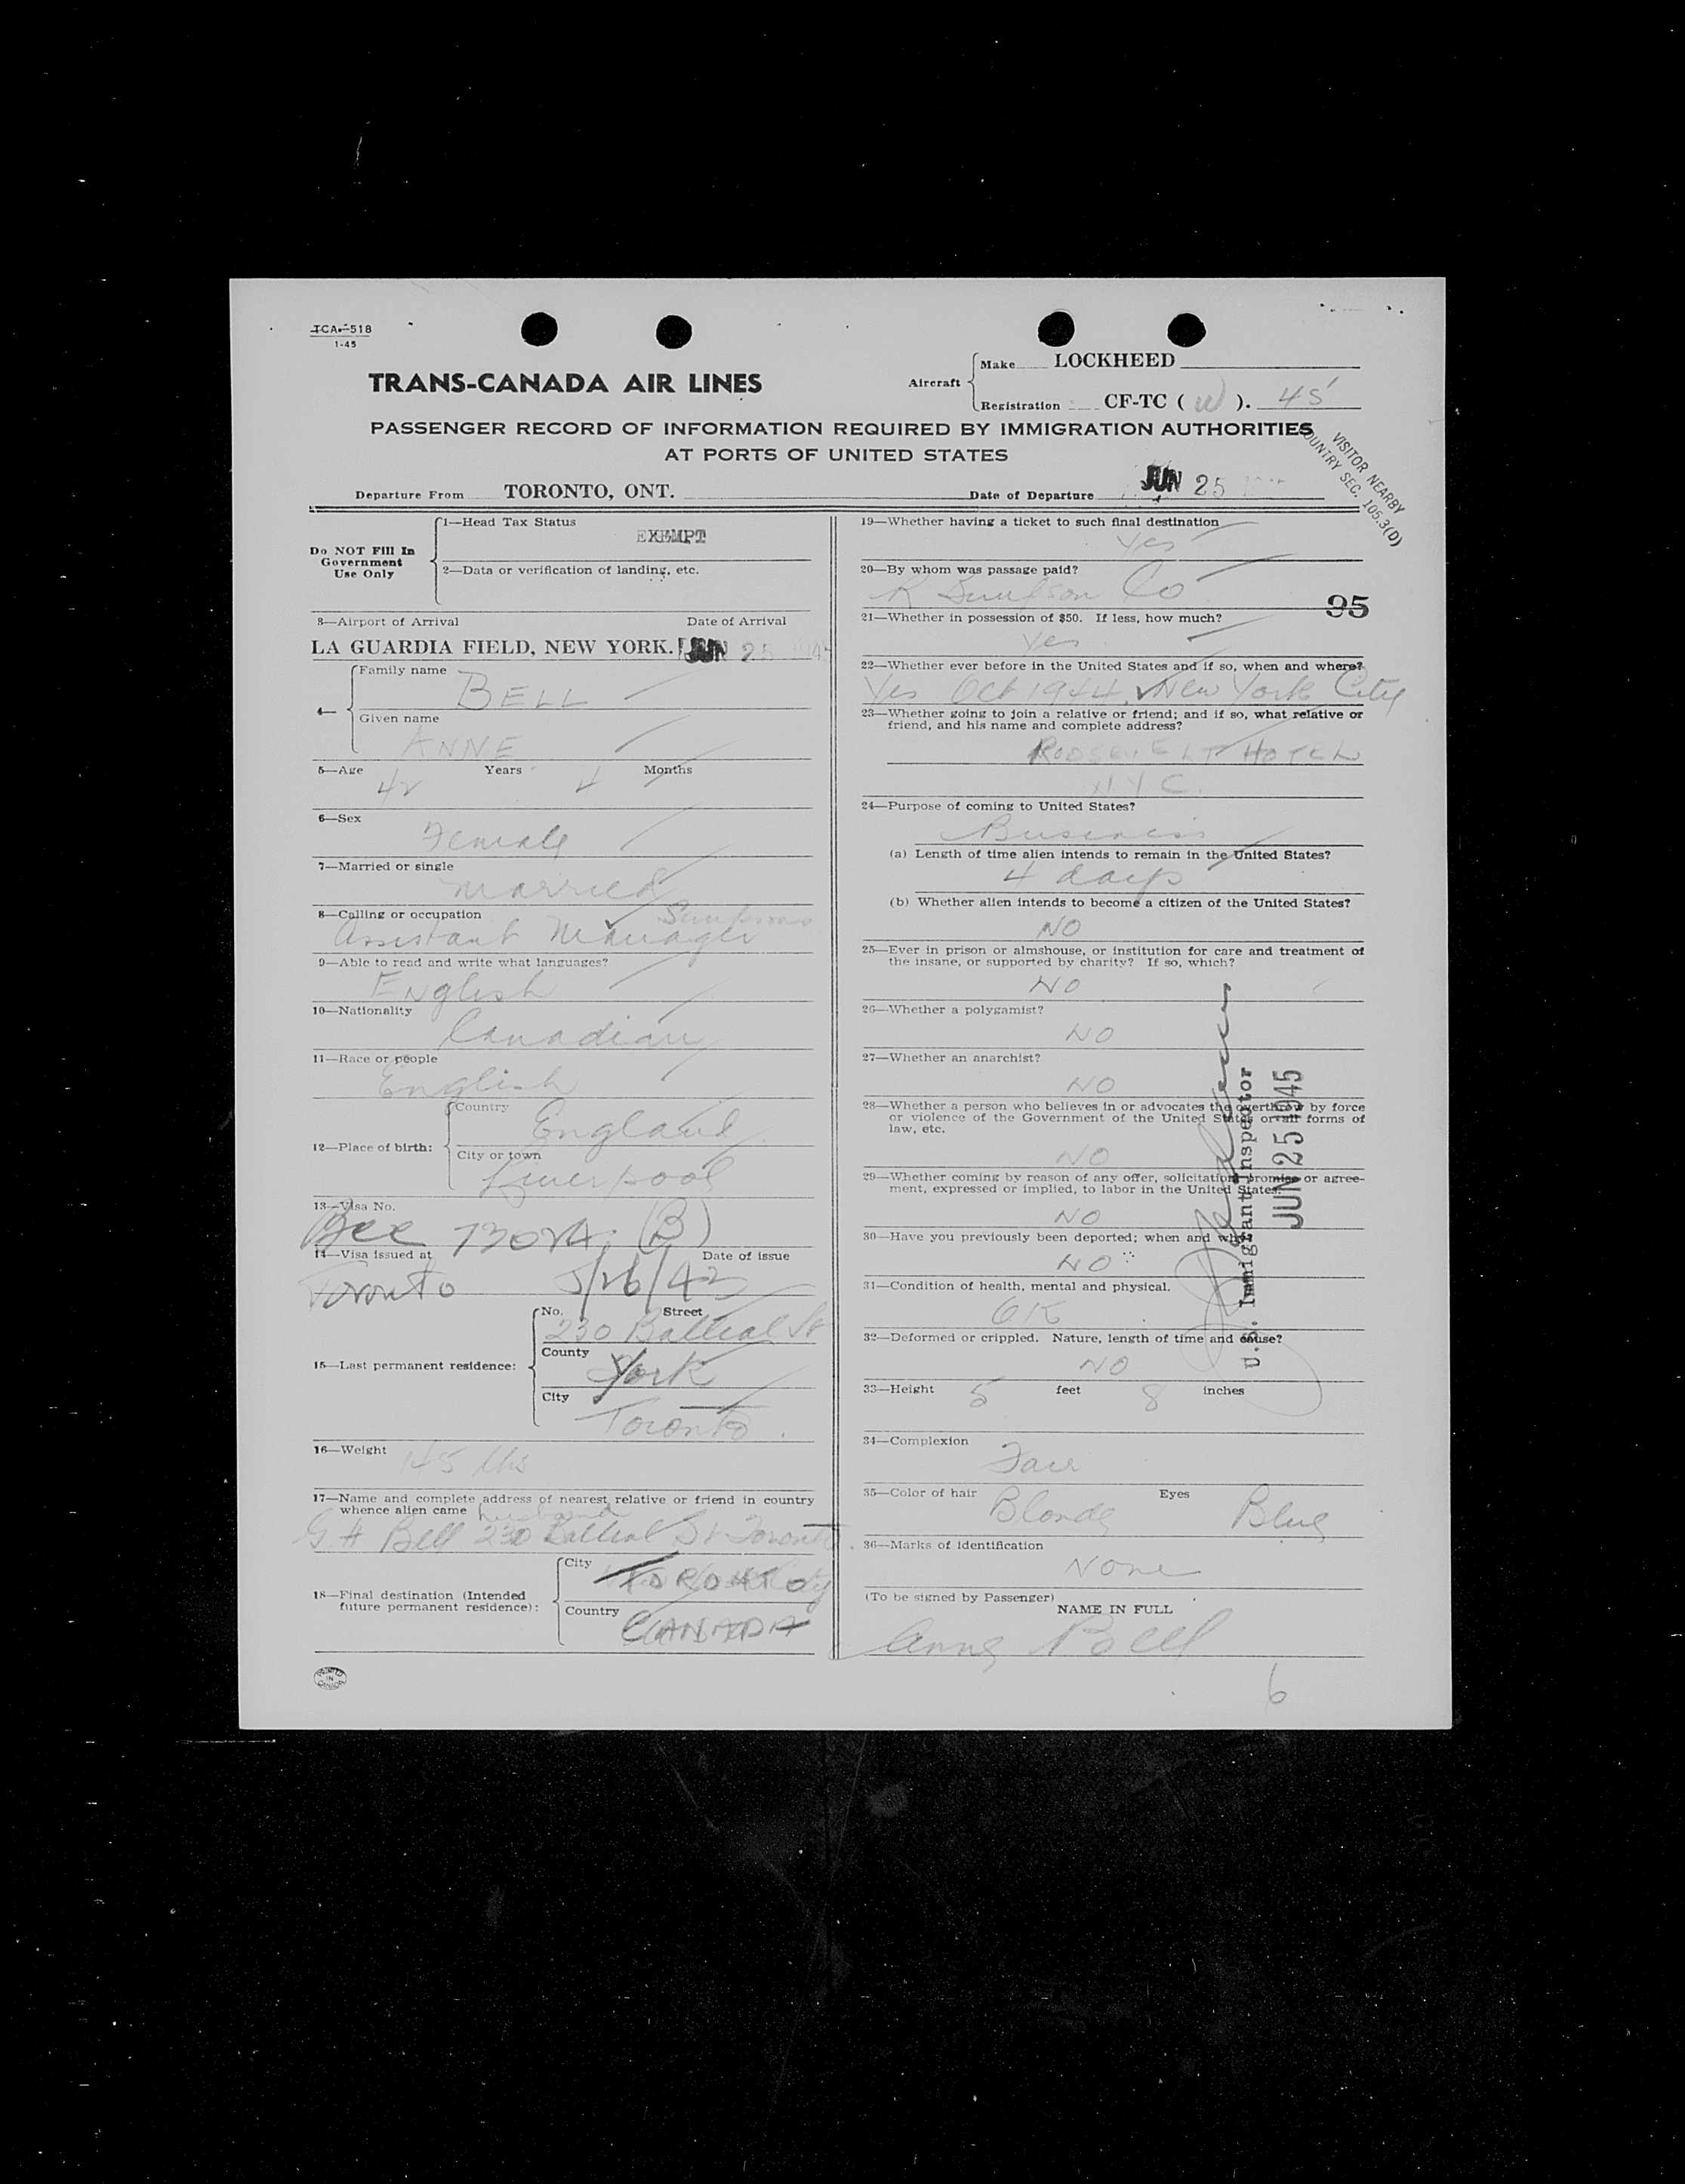 TCA-518
1-45
TRANS-CANADA AIR LINES
Aircraft
Make LOCKHEED
Registration CF-TC ( W ). 45
PASSENGER RECORD OF INFORMATION REQUIRED BY IMMIGRATION AUTHORITIES
AT PORTS OF UNITED STATES
VISITOR NEARBY
COUNTRY SEC. 105.3(D)
Departure From TORONTO, ONT.
Date of Departure JUN 25
Do NOT Fill In
Government
Use Only
1—Head Tax Status
EXEMPT
2—Data or verification of landing, etc.
3—Airport of Arrival Date of Arrival
LA GUARDIA FIELD, NEW YORK. JUN 25 1945
4—
Family name
BELL
Given name
ANNE
5—Age 42 Years 4 Months
6—Sex
Female
7—Married or single
Married
8—Calling or occupation Simpsons
Assistant Manager
9—Able to read and write what languages?
English
10—Nationality
Canadian
11—Race or people
English
12—Place of birth:
Country
England
City or town
Liverpool
13—Visa No.
Bcc (B)
14—Visa issued at Date of issue
Toronto 5/26/43
15—Last permanent residence:
No. Street
230 Balliol St
County
York
City
Toronto
16—Weight 145 lbs
17—Name and complete address of nearest relative or friend in country
whence alien came husband
G H Bell 230 Balliol St Toronto
18—Final destination (Intended
future permanent residence):
City
TORONTO
Country
CANADA
PRINTED
IN
CANADA
19—Whether having a ticket to such final destination
Yes
20—By whom was passage paid?
R Simpson Co
95
21—Whether in possession of $50. If less, how much?
Yes
22—Whether ever before in the United States and if so, when and where?
Yes Oct 1944 New York City
23—Whether going to join a relative or friend; and if so, what relative or
friend, and his name and complete address?
ROOSEVELT HOTEL
N Y C.
24—Purpose of coming to United States?
Business
(a) Length of time alien intends to remain in the United States?
4 days
(b) Whether alien intends to become a citizen of the United States?
NO
25—Ever in prison or almshouse, or institution for care and treatment of
the insane, or supported by charity? If so, which?
NO
26—Whether a polygamist?
NO
27—Whether an anarchist?
NO
28—Whether a person who believes in or advocates the overthrow by force
or violence of the Government of the United States or all forms of
law, etc.
NO
29—Whether coming by reason of any offer, solicitation, promise or agree-
ment, expressed or implied, to labor in the United States.
NO
30—Have you previously been deported; when and why?
NO
31—Condition of health, mental and physical.
OK
32—Deformed or crippled. Nature, length of time and cause?
NO
33—Height 5 feet 8 inches
34—Complexion
Fair
35—Color of hair Blonde Eyes Blue
36—Marks of identification
None
(To be signed by Passenger)
NAME IN FULL
Anne Bell
6
U.S. Immigrant Inspector
JUN 25 1945